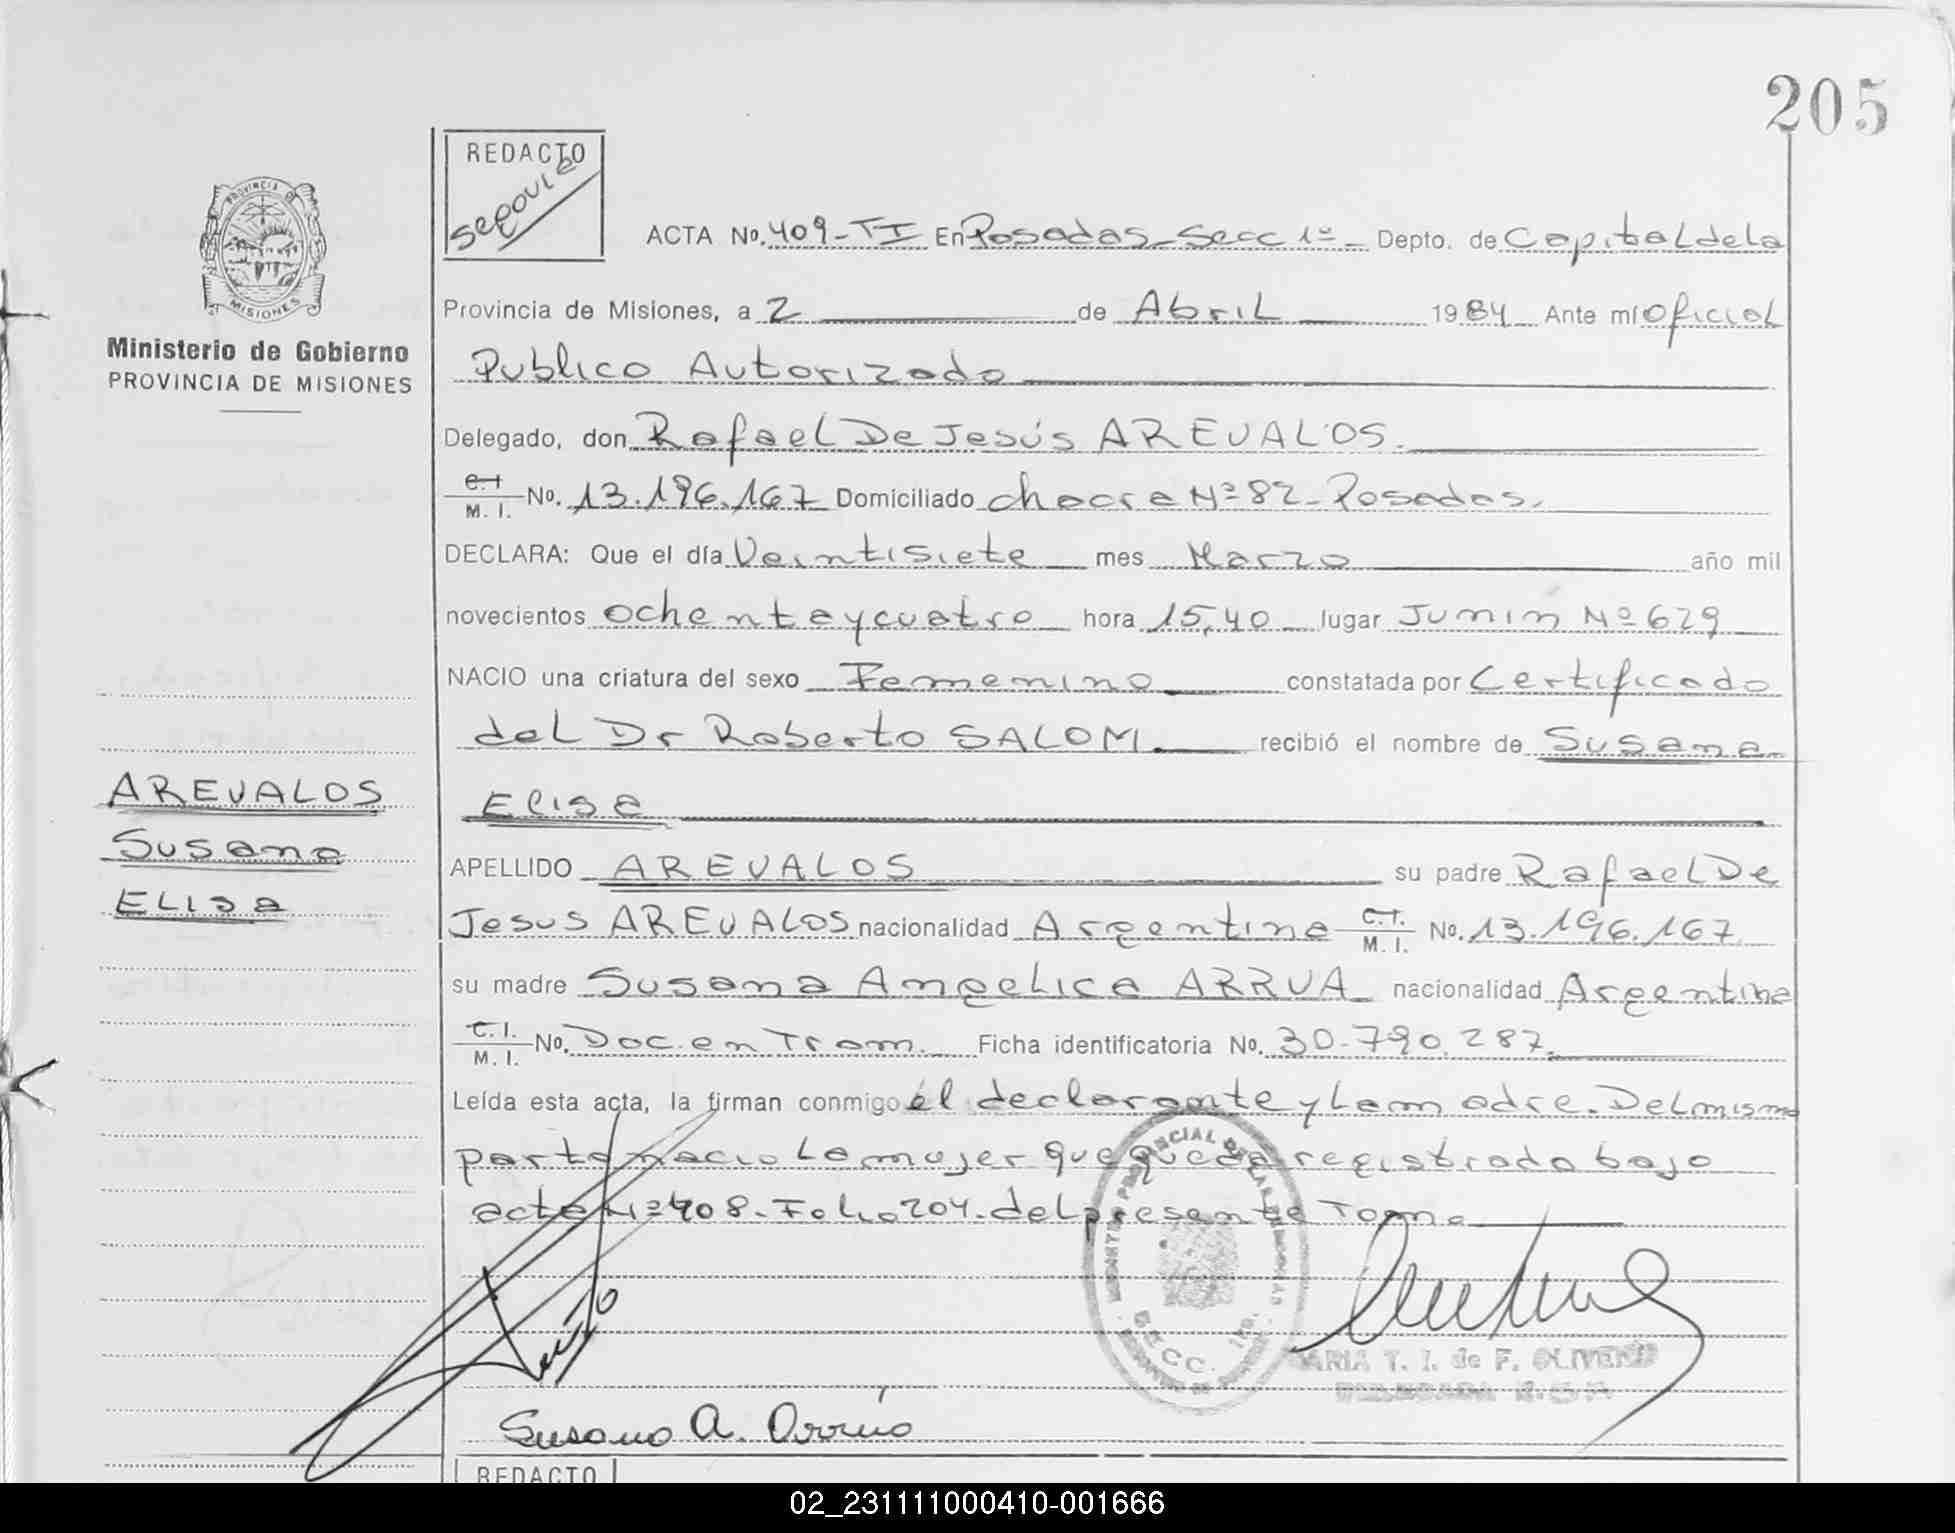 205
REDACTO
Segovia
ACTA No. 409-TI En Posadas-Secc 1º- Depto. de Capital de la
Provincia de Misiones, a 2 de Abril 1984 Ante mí Oficial
Publico Autorizado
Delegado, don Rafael De Jesús AREVALOS.
C.I. M. I. No. 13.196.167 Domiciliado chacra Nº 82-Posadas.
DECLARA: Que el día Veintisiete mes Marzo año mil
novecientos ochenta y cuatro hora 15,40 lugar Junín Nº 629
NACIO una criatura del sexo Femenino constatada por Certificado
del Dr Roberto SALOM. recibió el nombre de Susana
Elisa
APELLIDO AREVALOS su padre Rafael De
Jesus AREVALOS nacionalidad Argentina C.I. M. I. No. 13.196.167
su madre Susana Angelica ARRUA nacionalidad Argentina
C.I. M. I. No. Doc. en Tram. Ficha identificatoria No. 30.790.287.
Leída esta acta, la firman conmigo él declarante y la madre. Del mismo
parto nacio la mujer que queda registrada bajo
acta Nº 408-Folio 204-del presente Tomo
Ministerio de Gobierno
PROVINCIA DE MISIONES
PROVINCIA DE
MISIONES
AREVALOS
Susana
ELISA
SECC. 1ra.
ARIA T. I. de F. OLIVERA
DELEGADA
Susana A. Arrúa
REDACTO
02_231111000410-001666